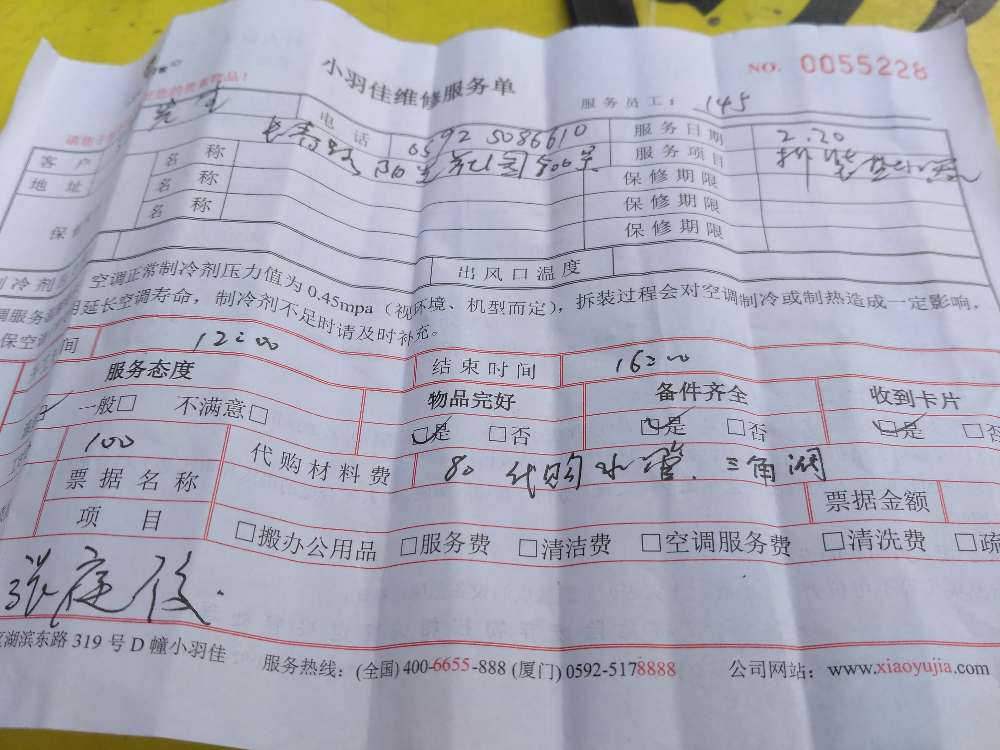 小羽佳维修服务单
NO. 0055228
服务员工: 145
客户
电话 0592 5086610
服务日期 2.20
地址
服务项目
名称 保修期限
名称 保修期限
名称 保修期限
出风口温度
空调正常制冷剂压力值为0.45mpa(视环境、机型而定),拆装过程会对空调制冷或制热造成一定影响,
用延长空调寿命,制冷剂不足时请及时补充。
12:00 结束时间 16:00
服务态度 物品完好 备件齐全 收到卡片
一般□ 不满意□ □是 □否 □是 □否 □是 □否
100 代购材料费 80 代购水管.三角阀
票据名称 票据金额
项目 □搬办公用品 □服务费 □清洁费 □空调服务费 □清洗费 □疏
湖滨东路319号D幢小羽佳 服务热线:(全国)400-6655-888 (厦门)0592-5178888 公司网站:www.xiaoyujia.com